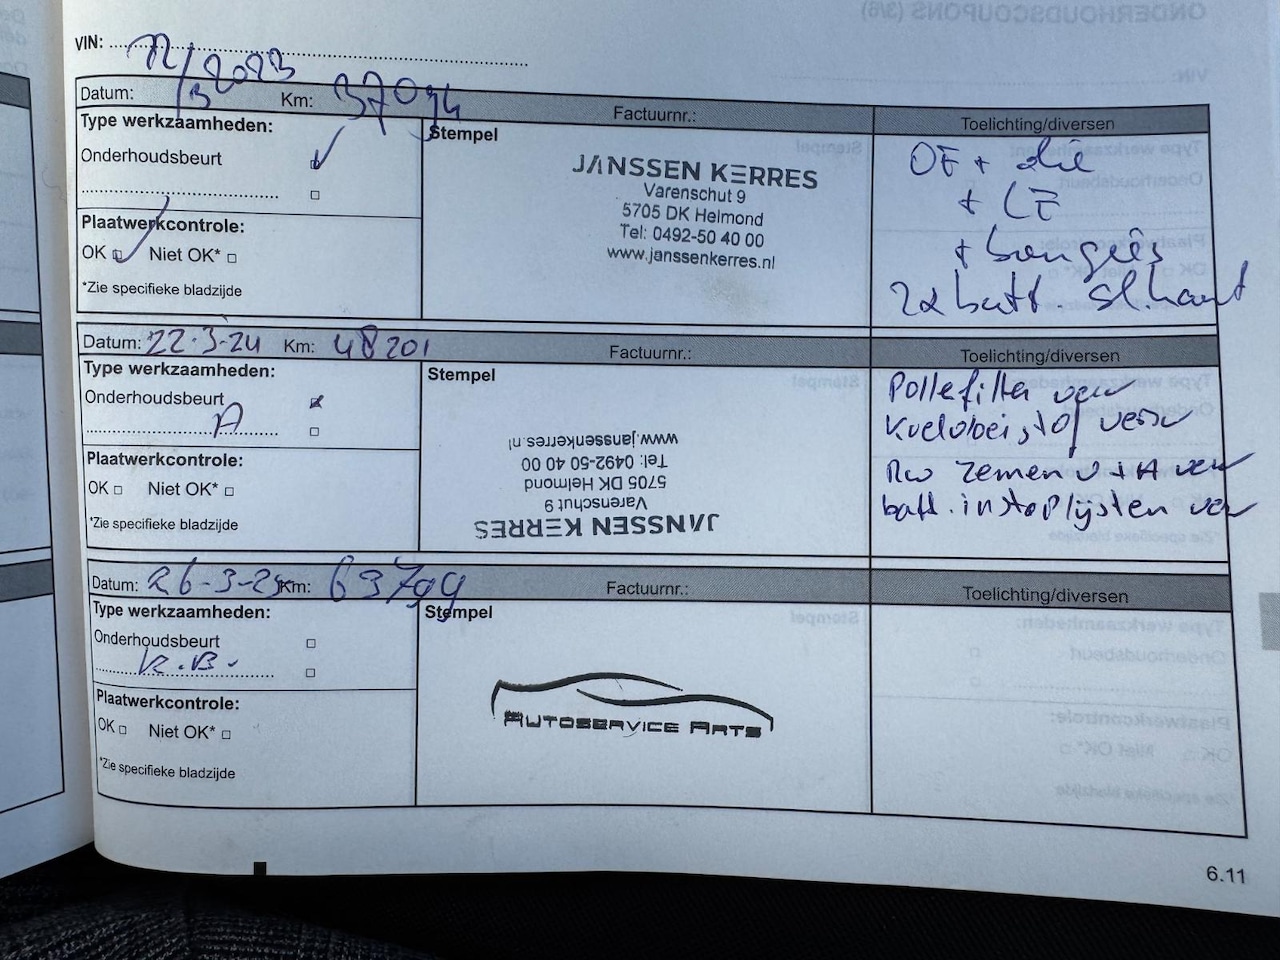 VIN:
Datum: 12/3 2023 Km: 37094 Factuurnr.: Toelichting/diversen
Type werkzaamheden:
Onderhoudsbeurt
Plaatwerkcontrole:
OK Niet OK*
*Zie specifieke bladzijde
Stempel
JANSSEN KERRES
Varenschut 9
5705 DK Helmond
Tel: 0492-50 40 00
www.janssenkerres.nl
OF + olie
+ LF
+ bougiës
2x batt.
Datum: 22-3-24 Km: 48201 Factuurnr.: Toelichting/diversen
Type werkzaamheden:
Onderhoudsbeurt
A
Plaatwerkcontrole:
OK Niet OK*
*Zie specifieke bladzijde
Stempel
JANSSEN KERRES
Varenschut 9
5705 DK Helmond
Tel: 0492-50 40 00
www.janssenkerres.nl
Pollefilter verv
Koelvloeistof verv
Rw remmen V + A verv
batt. instaplijsten verv
Datum: 26-3-25 Km: 63799 Factuurnr.: Toelichting/diversen
Type werkzaamheden:
Onderhoudsbeurt
K.B.
Plaatwerkcontrole:
OK Niet OK*
*Zie specifieke bladzijde
Stempel
AUTOSERVICE ARTS
6.11
ONDERHOUDSCOUPONS (3/6)